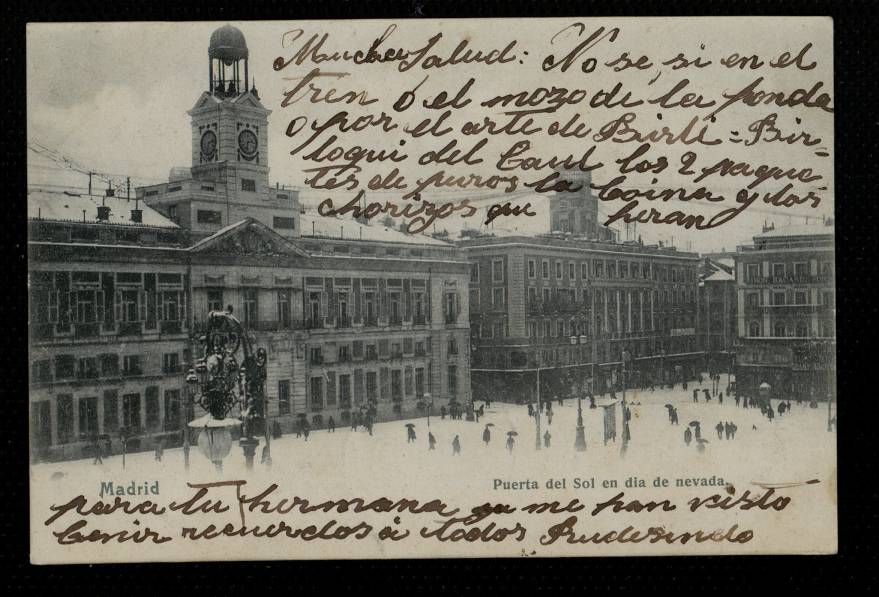 Mucha Salud: No se, si en el
tren ó el mozo de la fonda
o por el arte de Birli = Bir-
loqui del Caul los 2 paque-
tes de puros la boina y los
chorizos que heran
Madrid
Puerta del Sol en dia de nevada.
para tu hermana me han visto
benir recuerdos á todos Rudesindo